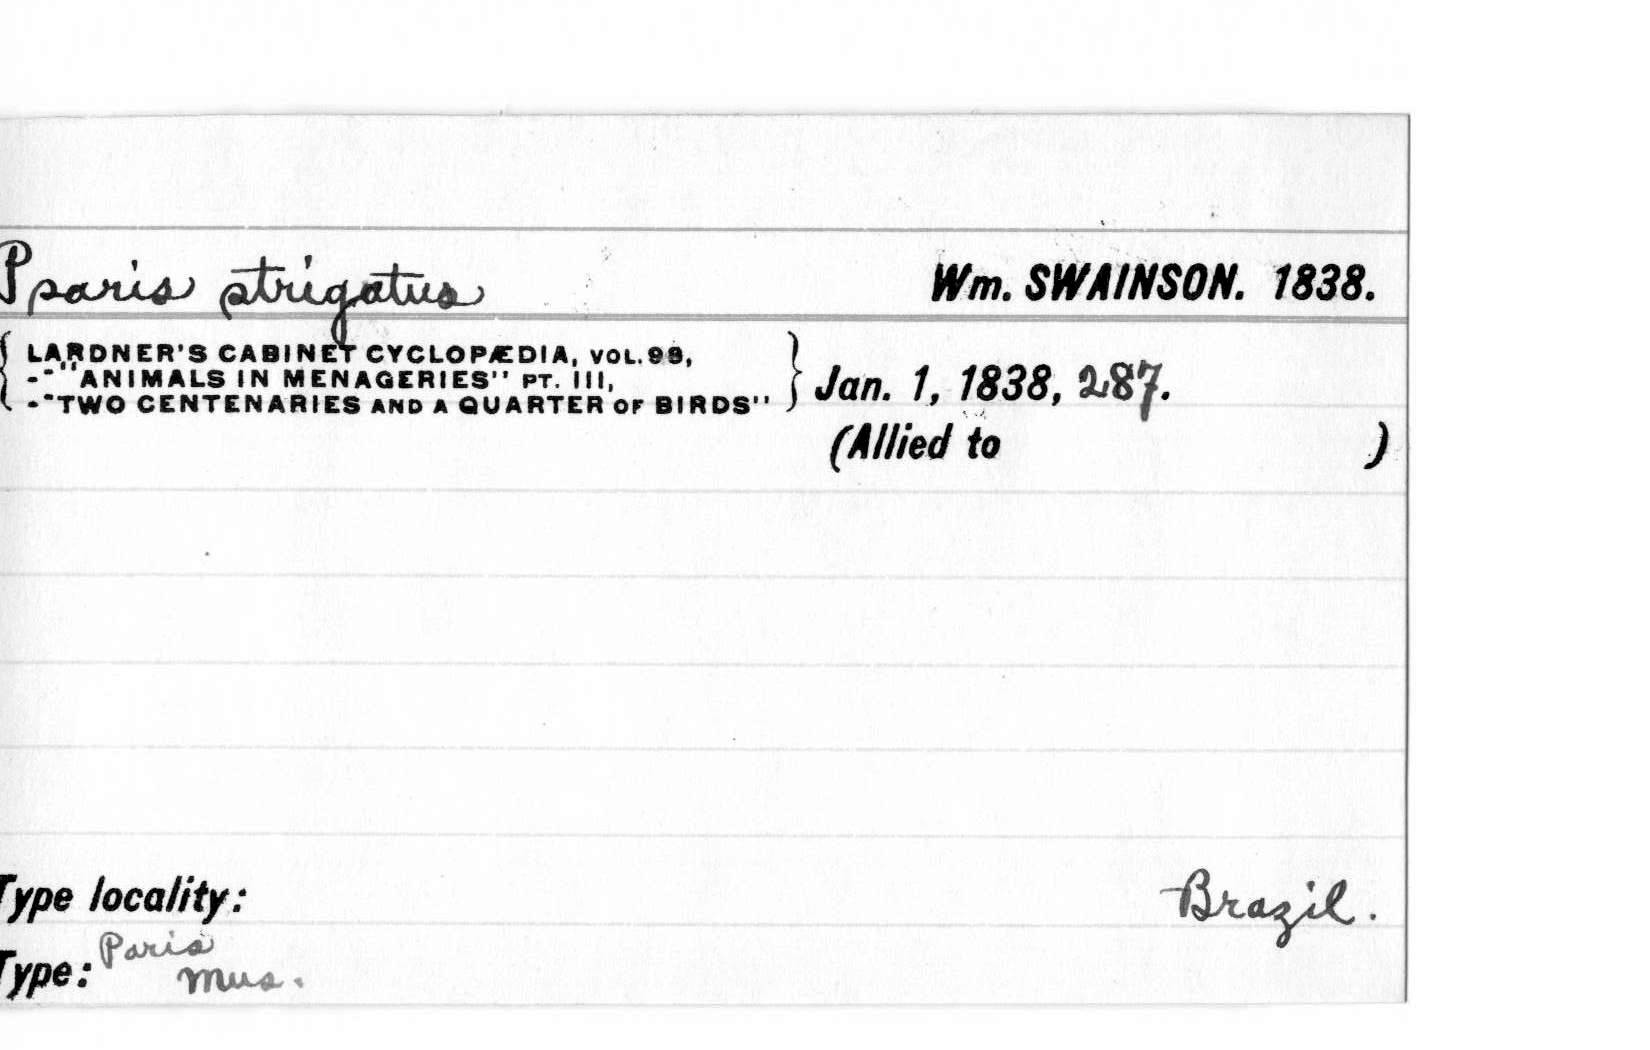 Psaris strigatus Wm. SWAINSON. 1838.
LARDNER'S CABINET CYCLOPÆDIA, VOL. 98,
-"ANIMALS IN MENAGERIES" PT. III,
-"TWO CENTENARIES AND A QUARTER OF BIRDS"
Jan. 1, 1838, 287.
(Allied to )
Type locality: Brazil.
Type: Paris
Mus.